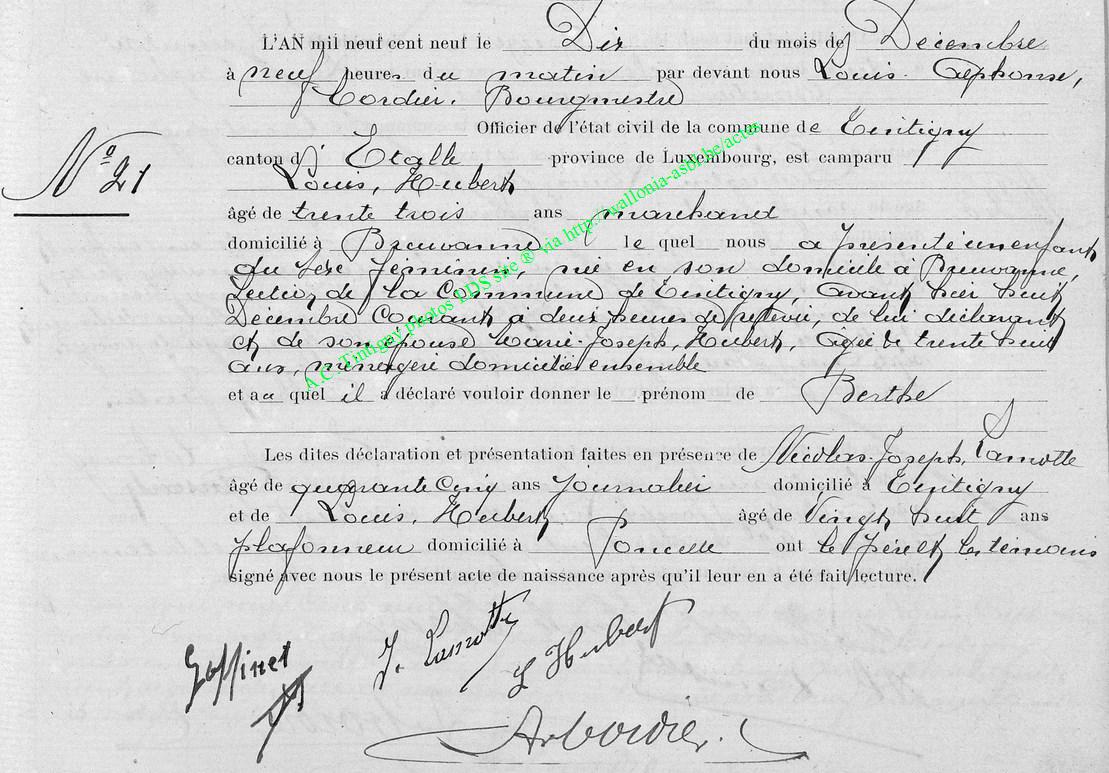 L'AN mil neuf cent neuf le Dix du mois de Décembre
à neuf heures du matin par devant nous Louis Alphonse,
Cordier, Bourgmestre
Officier de l'état civil de la commune de Tintigny
Nº 21
canton d' Etalle province de Luxembourg, est camparu
Louis, Hubert
âgé de trente trois ans marchand
domicilié à Breuvanne le quel nous a présenté un enfant
du sexe féminin, née en son domicile à Breuvanne,
Section de la Commune de Tintigny, avant hier huit
Décembre Courant à deux heures de relevée, de lui déclarant
et de son épouse Marie-Joseph, Hubert, âgée de trente huit
ans, ménagère domiciliés ensemble
et au quel il a déclaré vouloir donner le prénom de Berthe
Les dites déclaration et présentation faites en présence de Nicolas-Joseph, Lamotte
âgé de quarante cinq ans Journalier domicilié à Tintigny
et de Louis, Hubert, âgé de Vingt huit ans
plafonneur domicilié à Poncelle ont le père et les témoins
signé avec nous le présent acte de naissance après qu'il leur en a été fait lecture.
Goffinet
J. Lamotte
L Hubert
A Cordier.
A.C. Tintigny photos LDS site ® via http://wallonia-asbl.be/actes